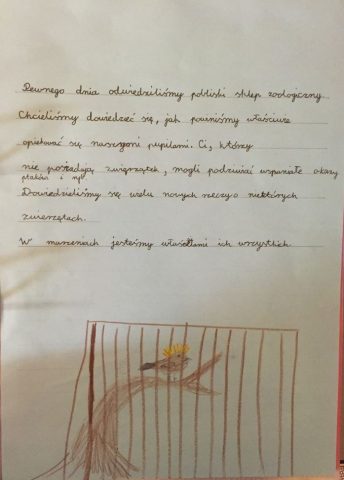 Pewnego dnia odwiedziliśmy pobliski sklep zoologiczny.
Chcieliśmy dowiedzieć się, jak powinniśmy właściwie
opiekować się naszymi pupilami. Ci, którzy
nie posiadają zwierzątek, mogli podziwiać wspaniałe okazy
ptaków i
Dowiedzieliśmy się wielu nowych rzeczy o niektórych
zwierzętach.
W marzeniach jesteśmy właścicielami ich wszystkich.